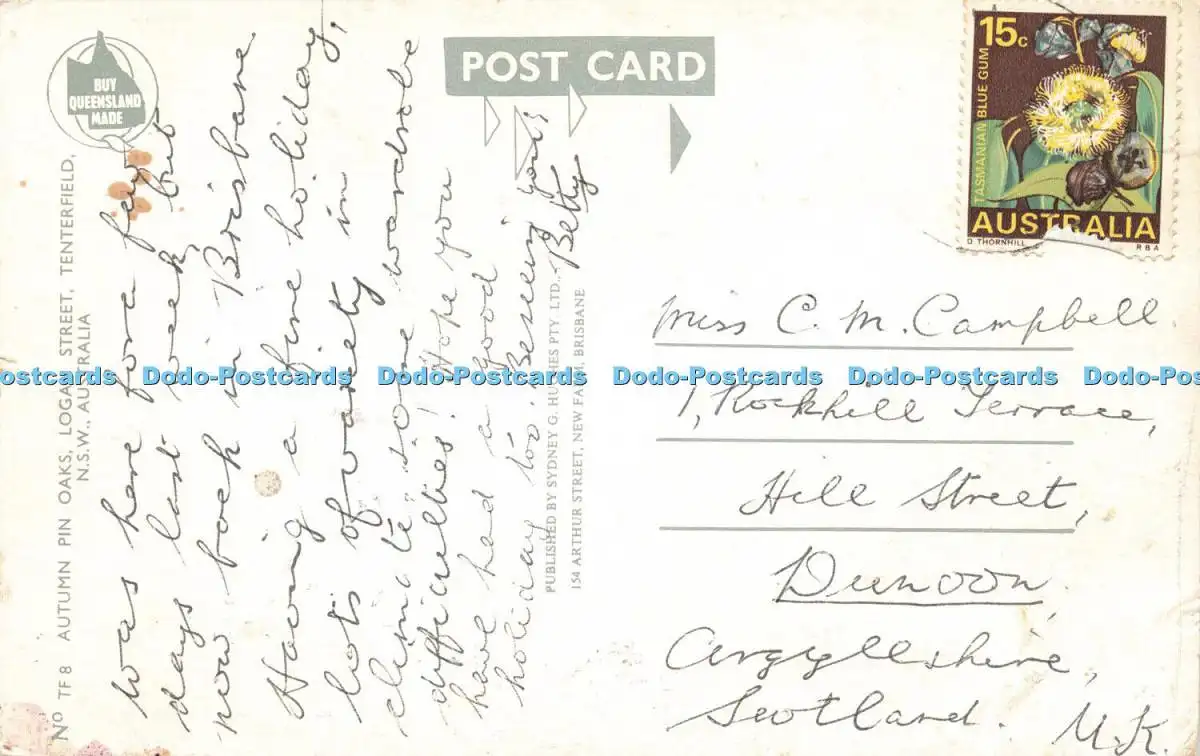 BUY
QUEENSLAND
MADE
No TF 8 AUTUMN PIN OAKS, LOGAN STREET, TENTERFIELD,
N.S.W., AUSTRALIA
POST CARD
Was here for a few
days last week but
now back in Brisbane.
Having a fine holiday,
lots of variety in
climate & some wardrobe
difficulties! Hope you
have had a good
holiday too. Beseeing you!
Betty
PUBLISHED BY SYDNEY G. HUGHES PTY. LTD.,
154 ARTHUR STREET, NEW FARM, BRISBANE
15c
TASMANIAN BLUE GUM
AUSTRALIA
D THORNHILL
R B A
Miss C. M. Campbell
1, Rockhill Terrace,
Hill Street,
Dunoon,
Argyllshire,
Scotland. U.K.
Dodo-Postcards Dodo-Postcards Dodo-Postcards Dodo-Postcards Dodo-Postcards Dodo-Postcards